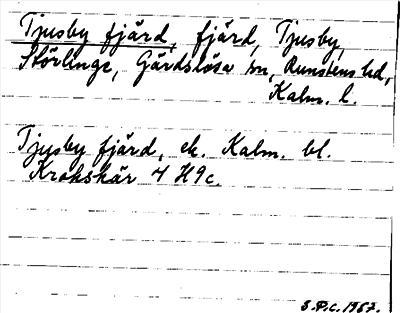 Tjusby fjärd, fjärd, Tjusby,
Störlinge, Gärdslösa sn, Runstens hd,
Kalm. l.
Tjusby fjärd, ek. Kalm. bl.
Krokskär 4 H 9c.
S.P.C. 1967.